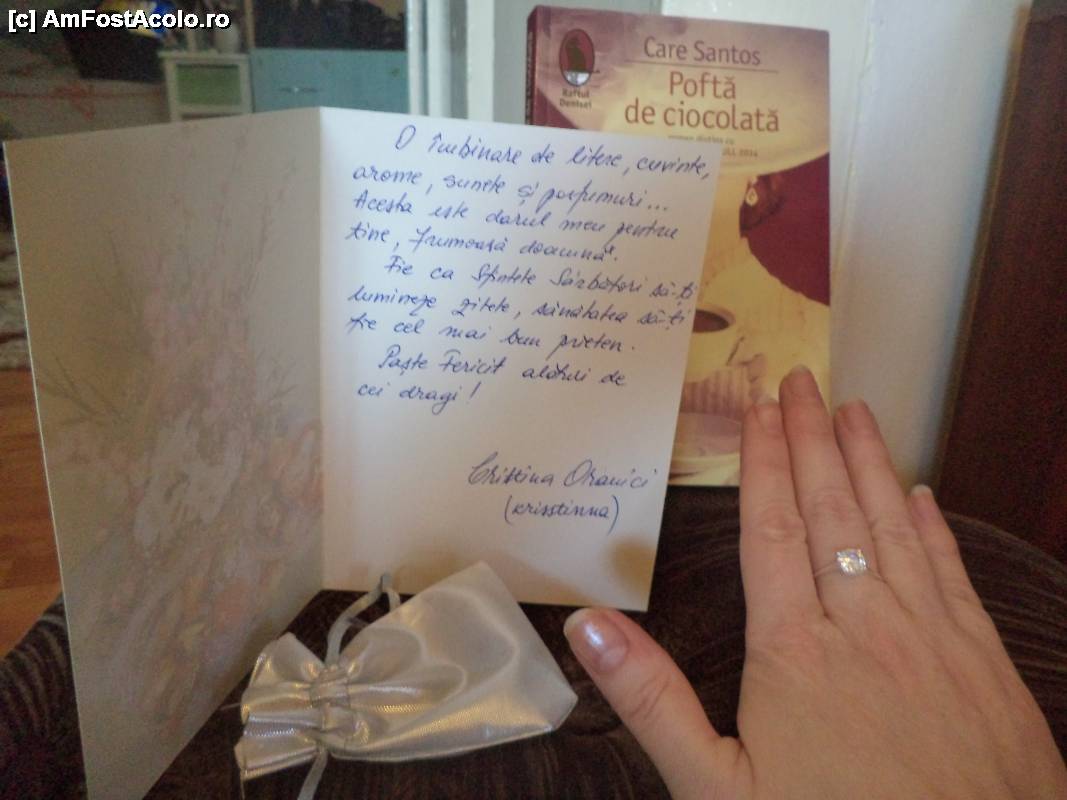 [c] AmFostAcolo.ro
Care Santos
Poftă
de ciocolată
Raftul
Denisei
2014
O îmbinare de litere, cuvinte,
arome, sunete și parfumuri...
Acesta este darul meu pentru
tine, frumoasă doamnă.
Fie ca Sfintele Sărbători să-ți
lumineze zilele, sănătatea să-ți
fie cel mai bun prieten.
Paște Fericit alături de
cei dragi!
Cristina
(krisstinna)